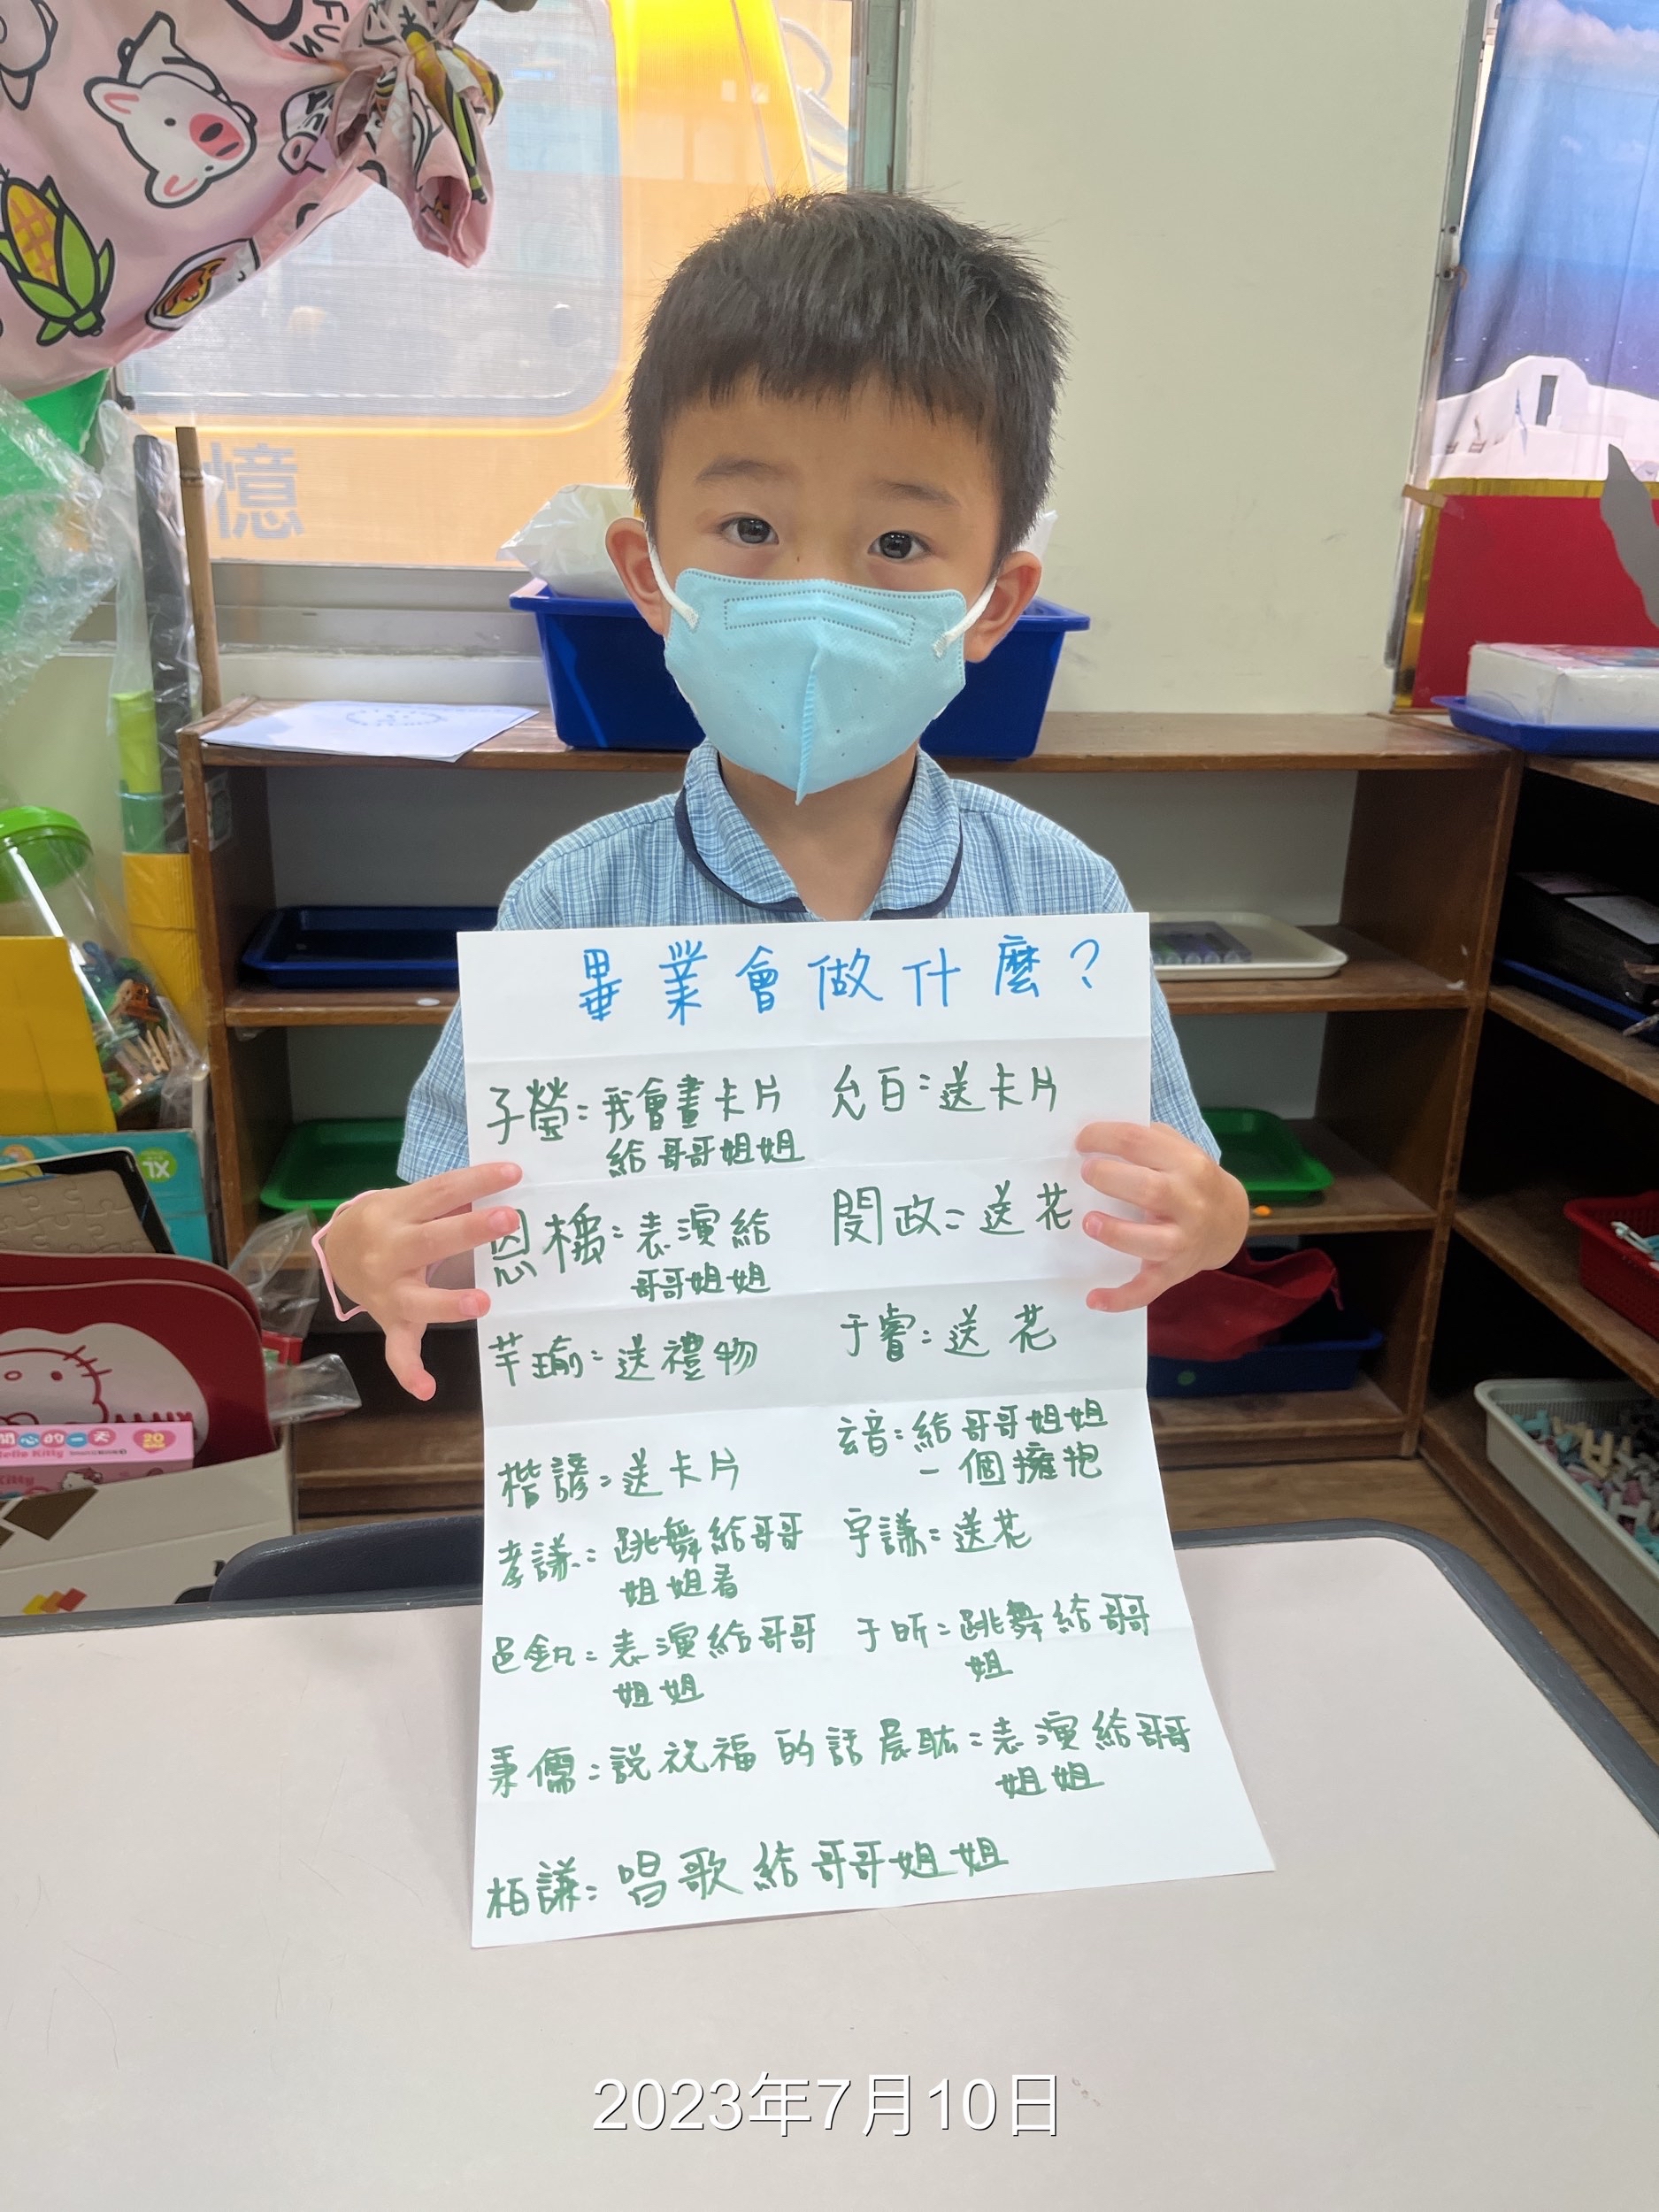 憶
畢業會做什麼?
子瑩:我會畫卡片
給哥哥姐姐
允百:送卡片
恩橋:表演給
哥哥姐姐
閔政:送花
芊瑜:送禮物
于睿:送花
玄音:給哥哥姐姐
一個擁抱
楷諺:送卡片
孝謙:跳舞給哥哥
姐姐看
宇謙:送花
邑釩:表演給哥哥
姐姐
于昕:跳舞給哥哥
姐
秉儒:説祝福的話
晨耾:表演給哥哥
姐姐
柏謙:唱歌給哥哥姐姐
開心的一天
Hello Kitty
20
XL
2023年7月10日